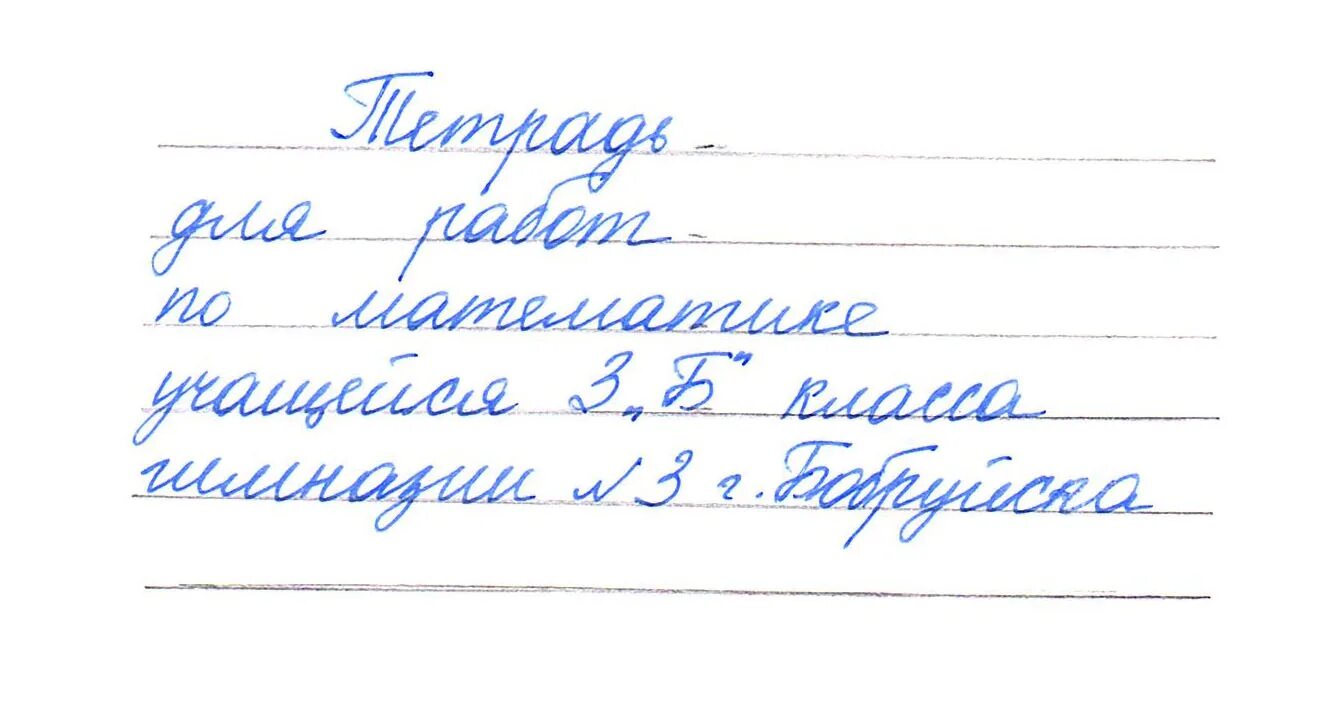 Тетрадь
для работ
по математике
учащейся 3 „Б" класса
гимназии № 3 г. Бобруйска